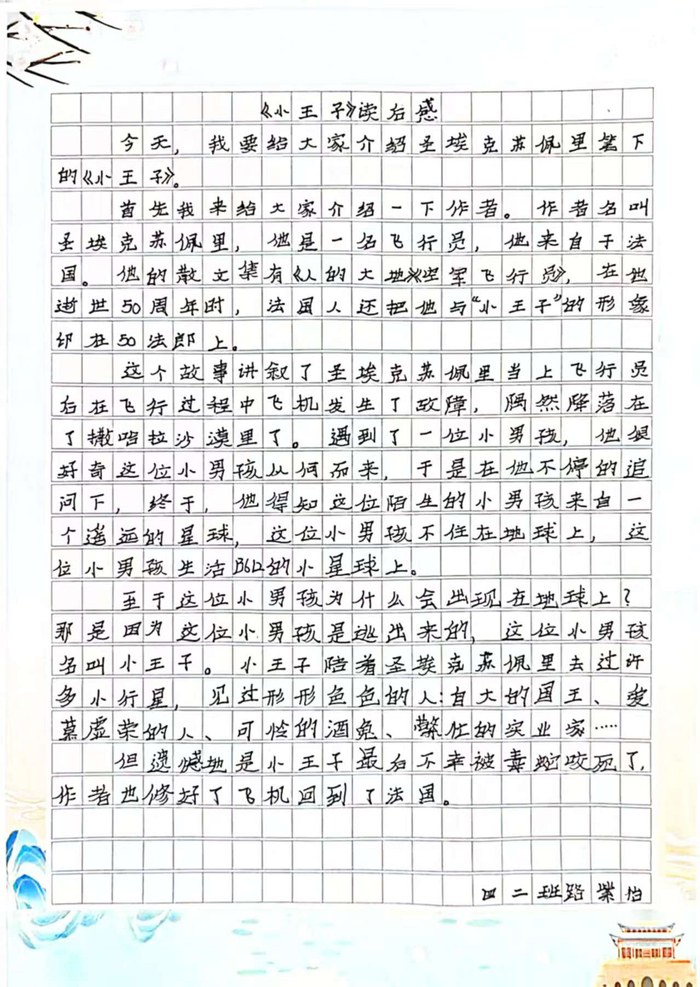 《小王子》读后感
今天，我要给大家介绍圣埃克苏佩里笔下
的《小王子》。
首先我来给大家介绍一下作者。作者名叫
圣埃克苏佩里，他是一名飞行员，他来自于法
国。他的散文集有《人的大地》《空军飞行员》，在他
逝世50周年时，法国人还把他与“小王子”的形象
印在50法郎上。
这个故事讲叙了圣埃克苏佩里当上飞行员
后在飞行过程中飞机发生了故障，偶然降落在
了撒哈拉沙漠里了。遇到了一位小男孩，他很
好奇这位小男孩从何而来，于是在他不停的追
问下，终于，他得知这位陌生的小男孩来自一
个遥远的星球，这位小男孩不住在地球上，这
位小男孩生活B612的小星球上。
至于这位小男孩为什么会出现在地球上？
那是因为这位小男孩是逃出来的，这位小男孩
名叫小王子。小王子陪着圣埃克苏佩里去过许
多小行星，见过形形色色的人：自大的国王、爱
慕虚荣的人、可怜的酒鬼、繁忙的实业家……
但遗憾地是小王子最后不幸被毒蛇咬死了，
作者也修好了飞机回到了法国。
四二班路紫怡